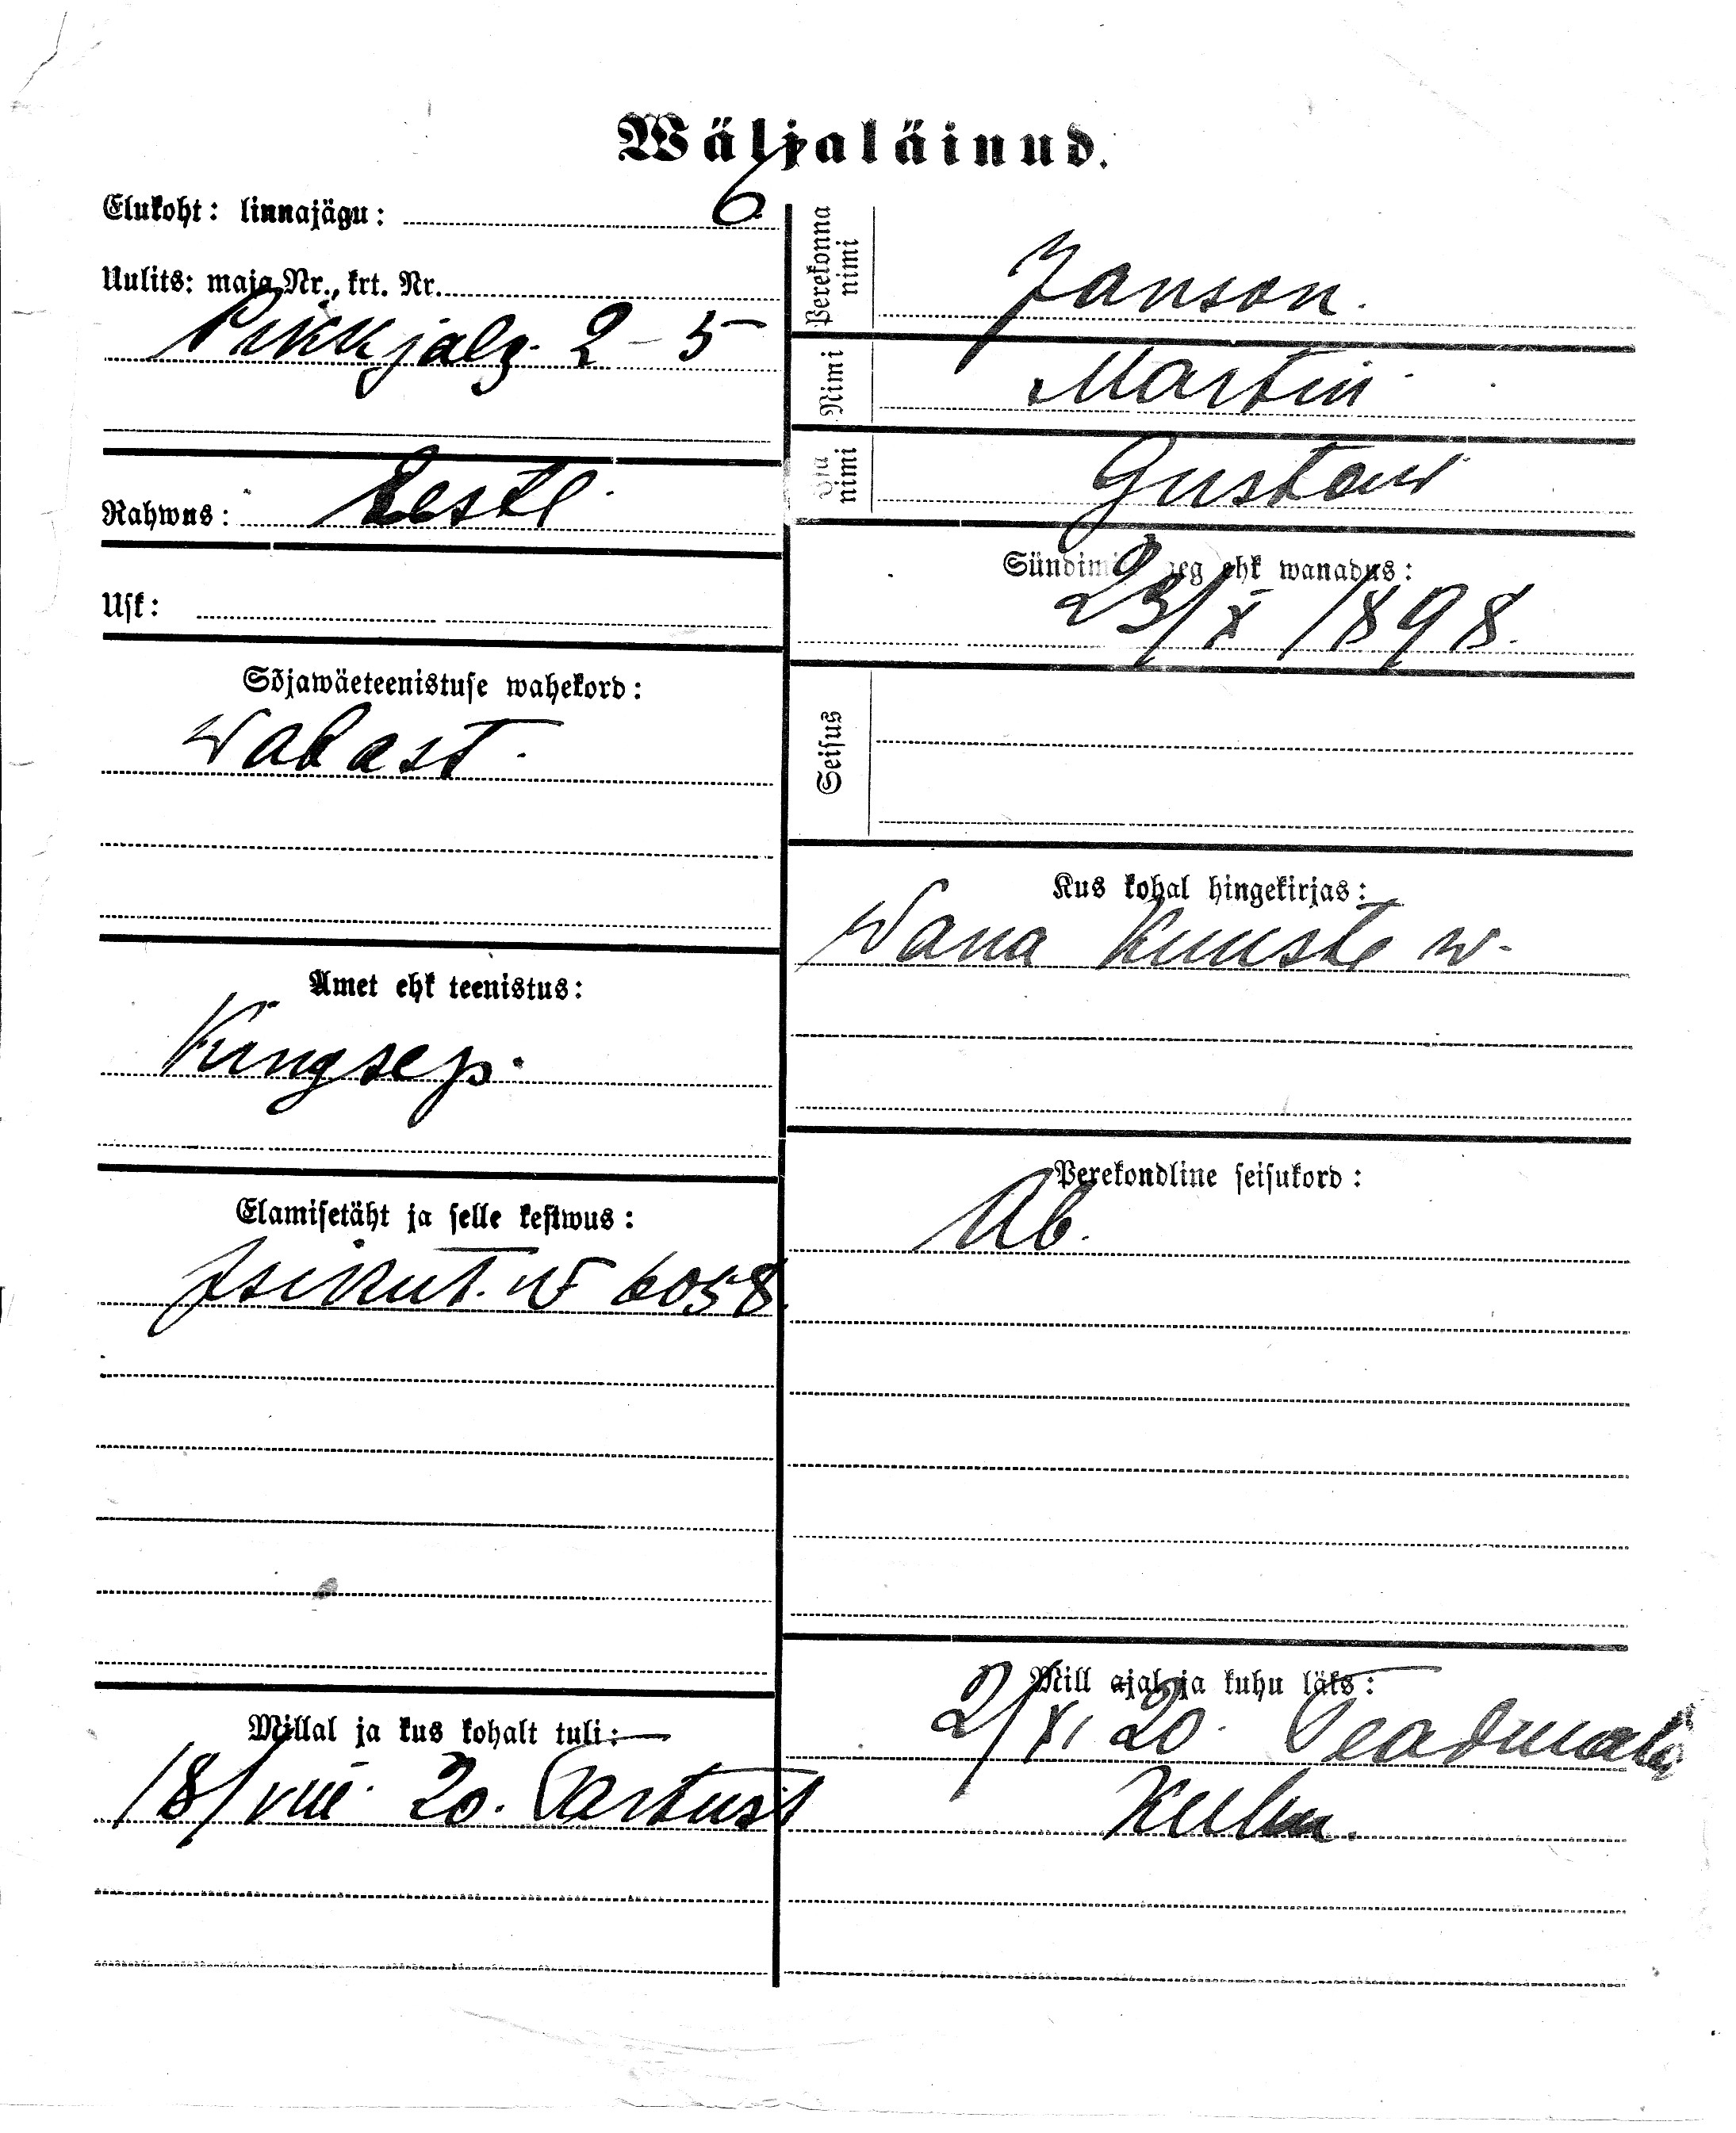 Wäljaläinud.
Elukoht: linnajägu: 6
Uulits: maja Nr., krt. Nr.
Pikkjalg. 2 - 5
Rahwus: Eesti
Usk:
Sõjawäeteenistuse wahekord:
Wabast.
Amet ehk teenistus:
Kingsep.
Elamisetäht ja selle kestwus:
Isikut. № 6058.
Millal ja kus kohalt tuli:
18/VIII 20. Tartust
Perekonna nimi
Janson.
Nimi
Martin
Isa nimi
Gustaw
Sündimise aeg ehk wanadus:
23/X 1898.
Seisus
Kus kohal hingekirjas:
Wana Kuuste w.
Perekondline seisukord:
Ab.
Mill ajal ja kuhu läks:
2/XI 20. Teadmata